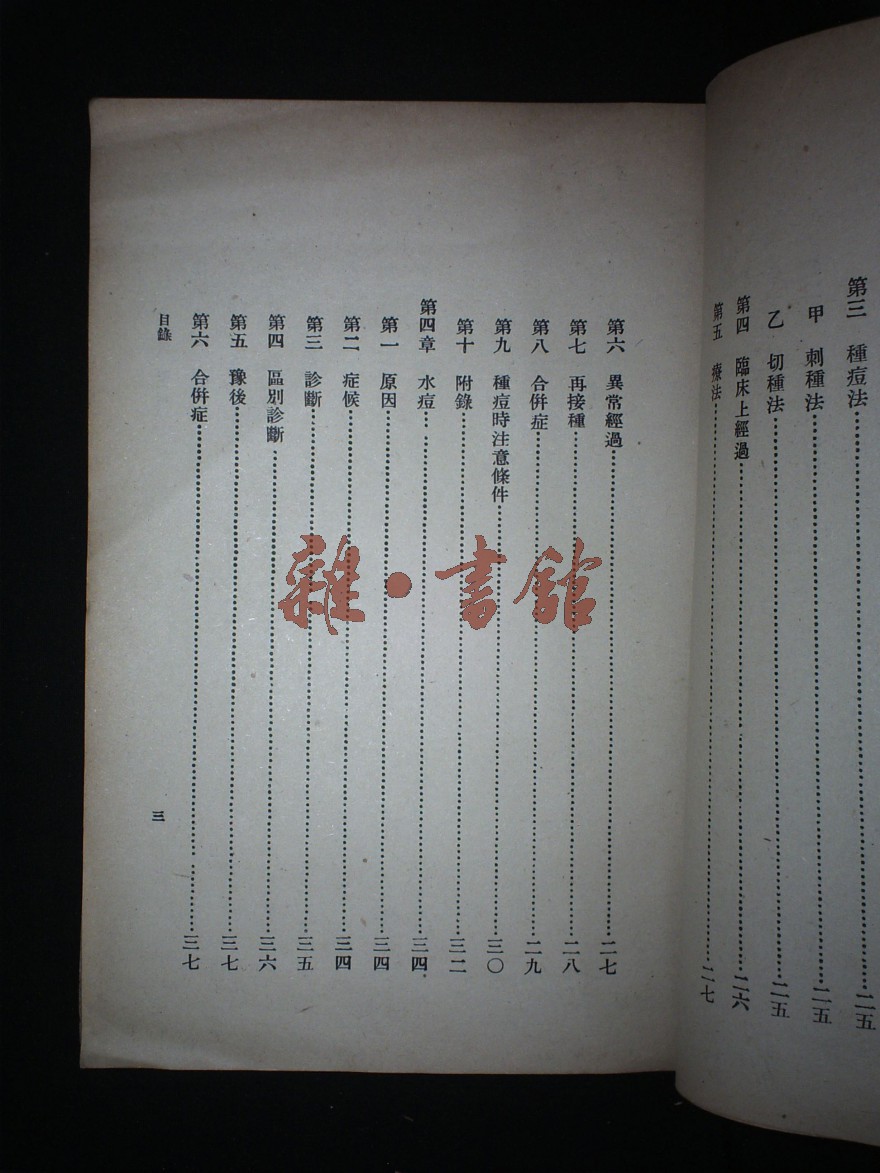 第三 種痘法……二五
甲 刺種法……二五
乙 切種法……二五
第四 臨床上經過……二六
第五 療法……二七
第六 異常經過……二七
第七 再接種……二八
第八 合併症……二九
第九 種痘時注意條件……三〇
第十 附錄……三二
第四章 水痘……三四
第一 原因……三四
第二 症候……三四
第三 診斷……三五
第四 區別診斷……三六
第五 豫後……三七
第六 合併症……三七
目錄
三
雜·書館